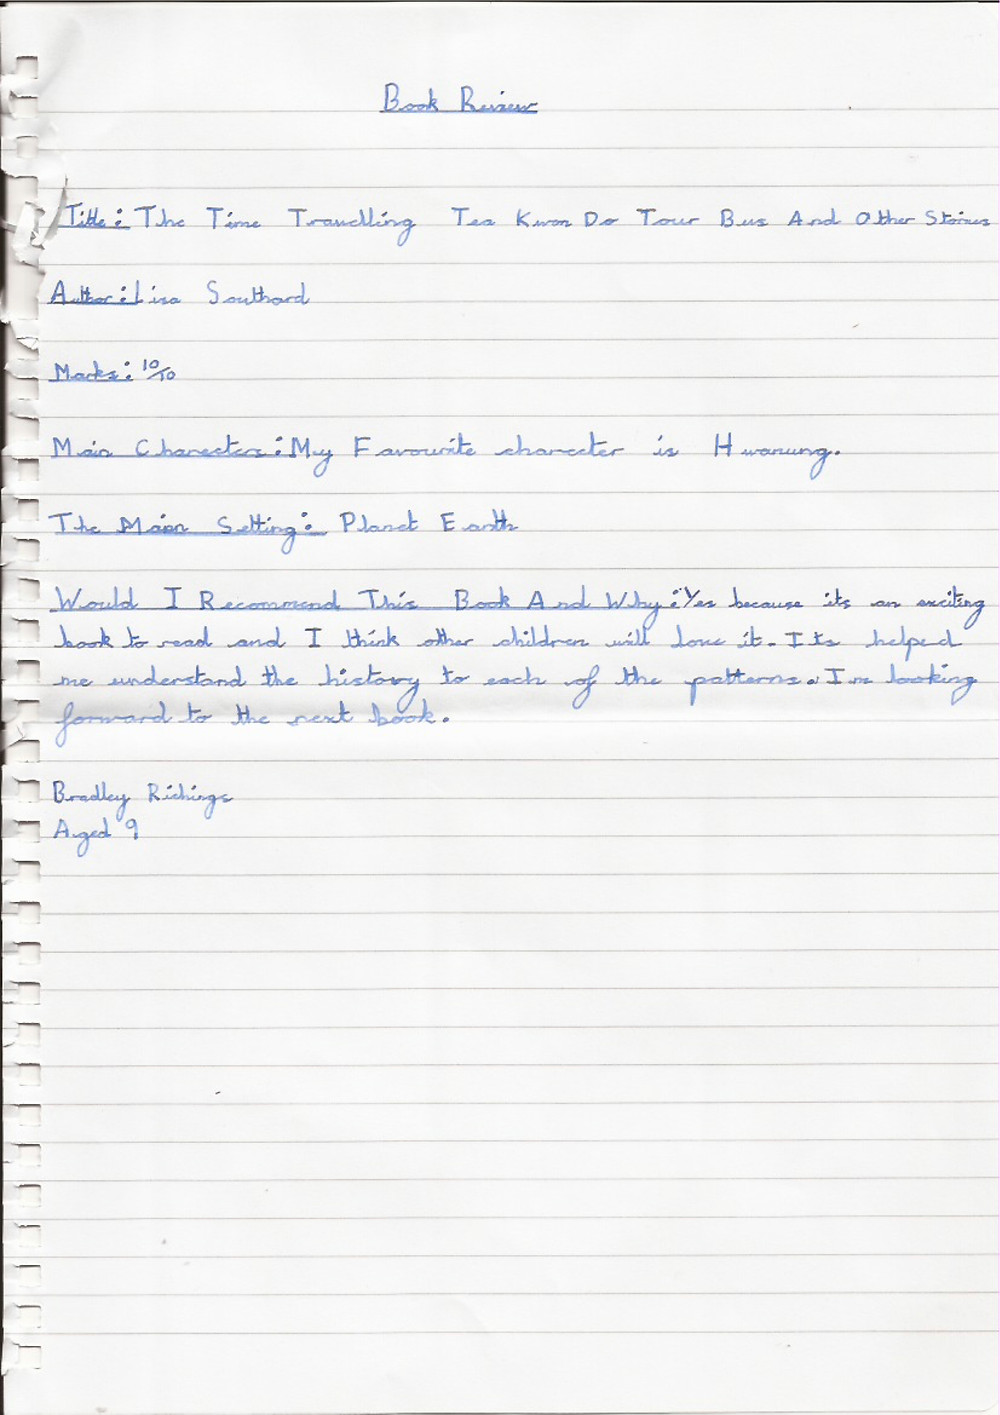 Book Review
Title: The Time Travelling Tea Kwon Do Tour Bus And Other Stories
Author: Lisa Southard
Marks: 10/10
Main Charecters: My Favourite charecter is Hwanung.
The Main Setting: Planet Earth
Would I Recommend This Book And Why: Yes because its an exciting
book to read and I think other children will love it. Its helped
me understand the history to each of the patterns. Im looking
forward to the next book.
Bradley Richings
Aged 9